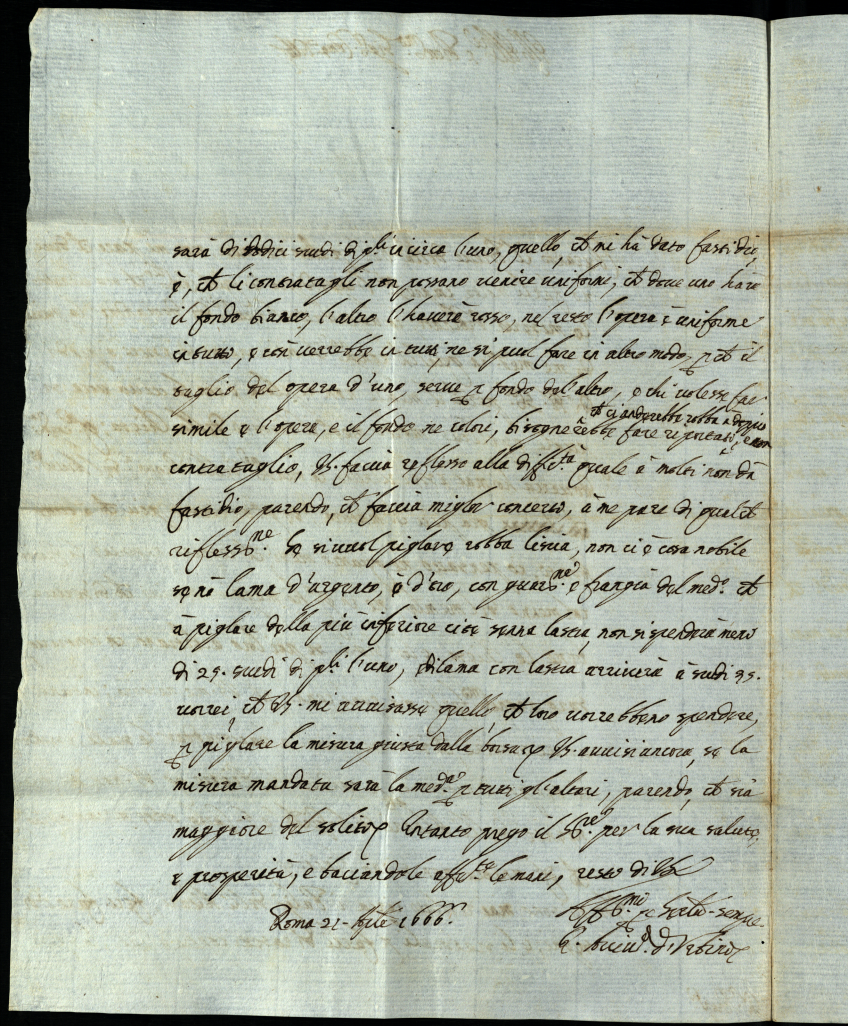 sarà di dodici scudi di pli in circa l'uno, quello, ch mi hà dato fastidio,
è, ch li contratagli non possano uenire uniformi, ch doue uno harà
il fondo bianco, l'altro l'hauerà rosso, nel resto l'opera è uniforme
in tutto, e così uerrebbe in tutti, ne si può fare in altro modo, p ch il
taglio del opera d'uno, serue p fondo del'altro, e chi uolesse far
ch ci anderebbe robba a doppio
simile e l'opera, e il fondo ne colori, bisognerebbe fare riportato, e non
contrataglio, VS. faccia reflesso alla diffta quale à molti non dà
fastidio, parendo, ch faccia miglor concerto, à me pare di qualch
riflessne. Se si uuol piglare robba liscia, non ci è cosa nobile
se nō lama d'argento, ò d'oro, con guarne e frangia del medo. ch
à piglare della più inferiore cioè senza lastra, non si spenderà meno
di 25. scudi di pli l'uno, di lama con lastra arriuerà à scudi 35.
uorrei, ch VS. mi auuisasse quello, ch loro uorrebbero spendere,
p piglare la misura giusta dalla borsa VS. auuisi ancora, se la
misura mandata sarà la meda p tutti gl'altari, parendo, ch sia
maggiore del solito Intanto prego il Sre. per la sua salute,
e prosperità, e baciandole affte le mani, resto di VS
Roma 21 Aple 1666.
Affmo p serla sempe
d'Urbino